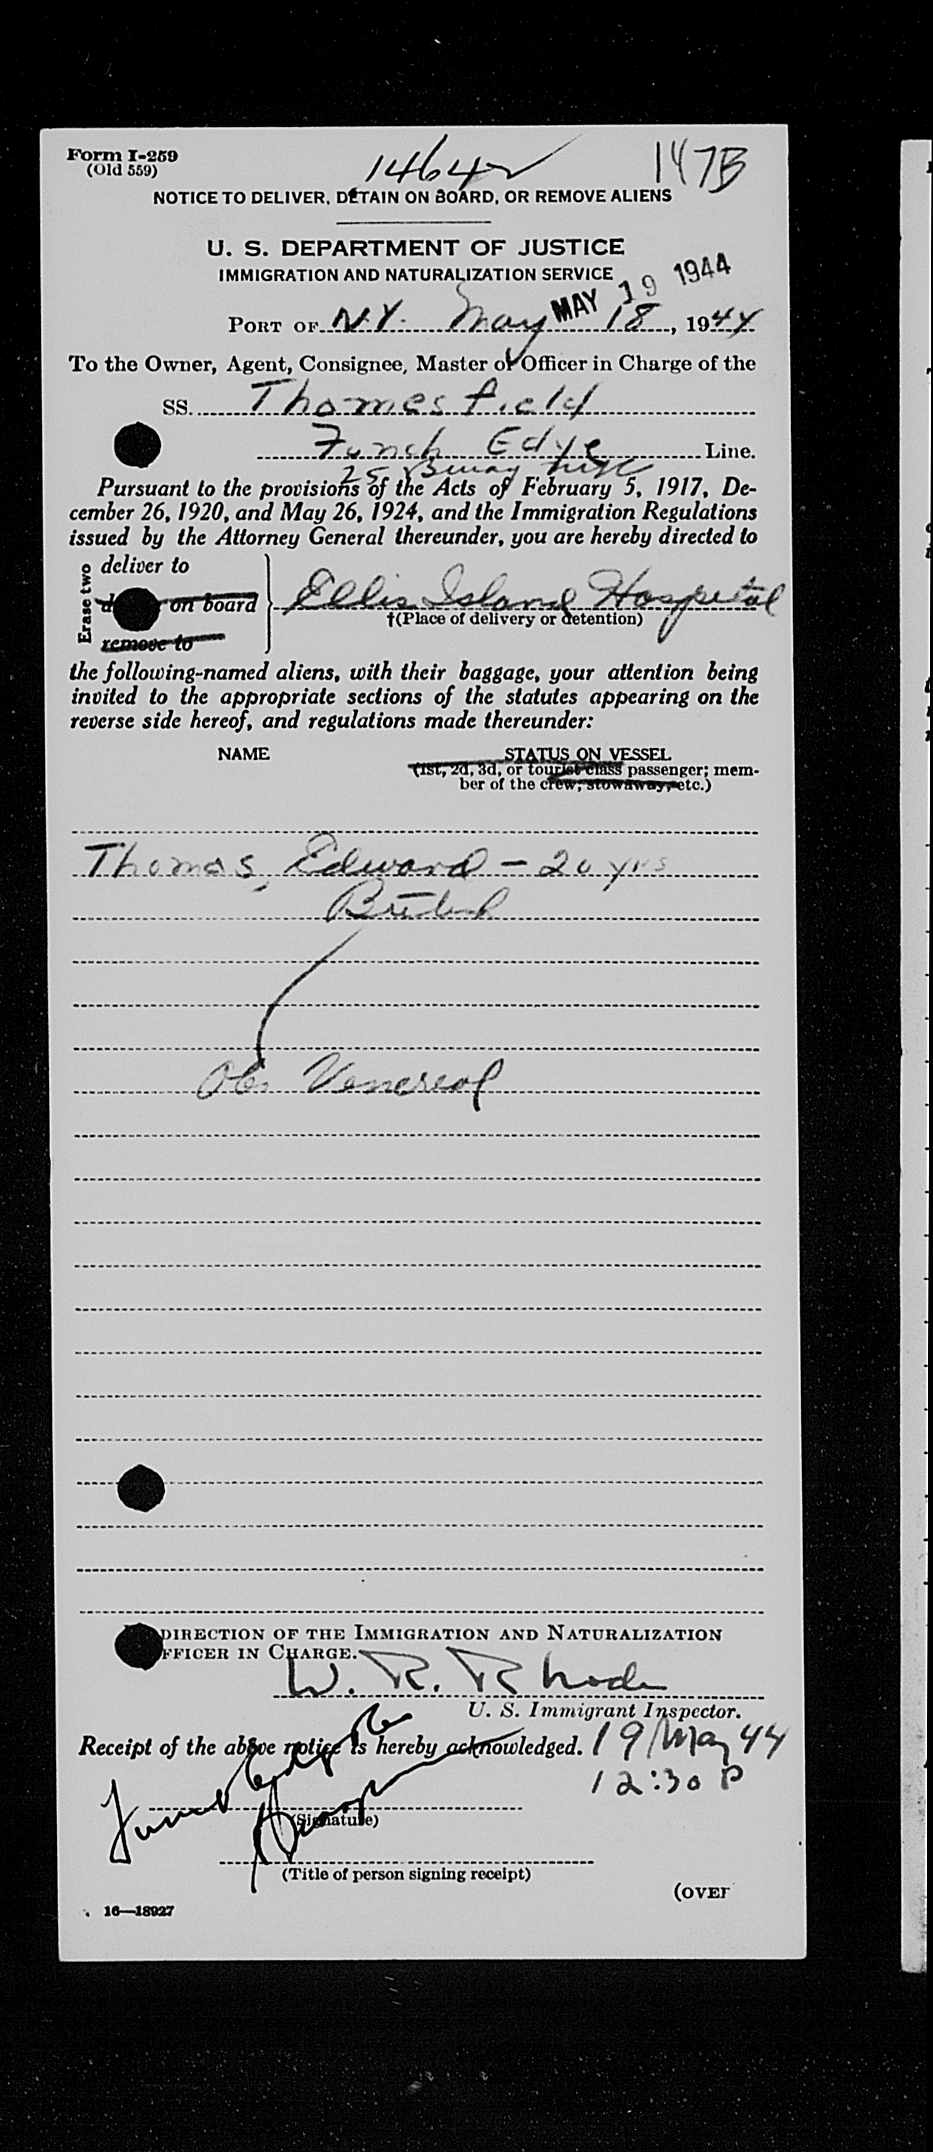 Form I-259
(Old 559)
14642
147B
NOTICE TO DELIVER, DETAIN ON BOARD, OR REMOVE ALIENS
U. S. DEPARTMENT OF JUSTICE
IMMIGRATION AND NATURALIZATION SERVICE
MAY 19 1944
PORT OF N.Y. May 18, 1944
To the Owner, Agent, Consignee, Master or Officer in Charge of the
SS. Thomesfield
Funch Edye Line.
25 Bway NYC
Pursuant to the provisions of the Acts of February 5, 1917, De-
cember 26, 1920, and May 26, 1924, and the Immigration Regulations
issued by the Attorney General thereunder, you are hereby directed to
Erase two
deliver to
on board
remove to
Ellis Island Hospital
†(Place of delivery or detention)
the following-named aliens, with their baggage, your attention being
invited to the appropriate sections of the statutes appearing on the
reverse side hereof, and regulations made thereunder:
NAME STATUS ON VESSEL
(1st, 2d, 3d, or tourist class passenger; mem-
ber of the crew, stowaway, etc.)
Thomas, Edward - 20 yrs
British
Obs Venereal
DIRECTION OF THE IMMIGRATION AND NATURALIZATION
FFICER IN CHARGE.
W. R. Rhode
U. S. Immigrant Inspector.
Receipt of the above notice is hereby acknowledged. 19 May 44
12:30 P
Funch Edye Co
(Signature)
(Title of person signing receipt)
(OVER
16—18927